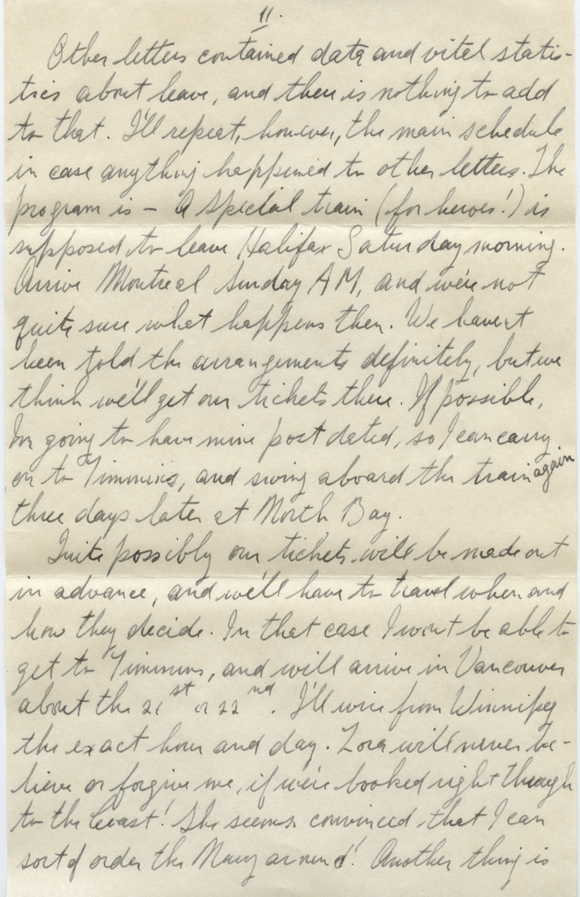 11.
Other letters contained data and vital statis-
tics about leave, and there is nothing to add
to that. I'll repeat, however, the main schedule
in case anything happened to other letters. The
program is - A special train (for heroes!) is
supposed to leave Halifax Saturday morning.
Arrive Montreal Sunday AM, and we're not
quite sure what happens then. We haven't
been told the arrangements definitely, but we
think we'll get our tickets there. If possible,
I'm going to have mine post dated, so I can carry
on to Timmins, and swing aboard the train again
three days later at North Bay.
Quite possibly our tickets will be made out
in advance, and we'll have to travel when and
how they decide. In that case I won't be able to
get to Timmins, and will arrive in Vancouver
about the 21st or 22nd. I'll wire from Winnipeg
the exact hour and day. Zora will never be-
lieve or forgive me, if we're booked right through
to the Coast! She seems convinced that I can
sort of order the Navy around! Another thing is